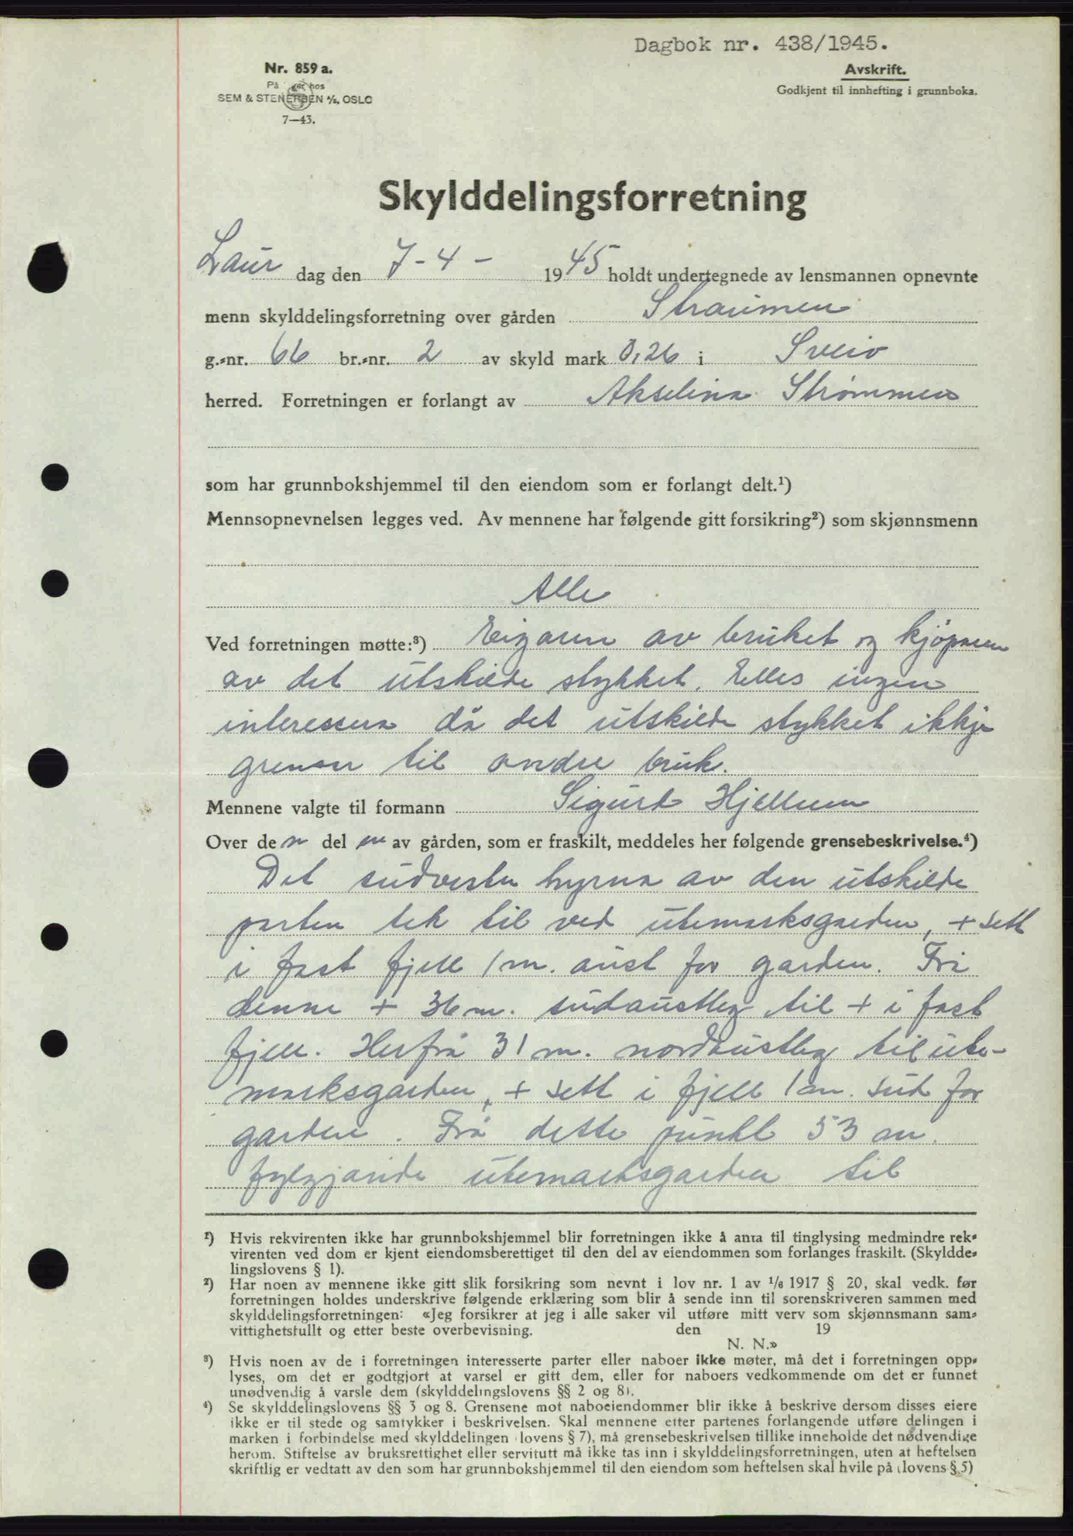 Dagbok nr. 438/1945.
Nr. 859 a.
På hos
SEM & STENERSEN A/S, OSLO
7—43.
Avskrift.
Godkjent til innhefting i grunnboka.
Skylddelingsforretning
Laur dag den 7-4- 1945 holdt undertegnede av lensmannen opnevnte
menn skylddelingsforretning over gården Straumen
g.-nr. 66 br.-nr. 2 av skyld mark 0,26 i Sveio
herred. Forretningen er forlangt av Akselina Strømmen
som har grunnbokshjemmel til den eiendom som er forlangt delt.¹)
Mennsopnevnelsen legges ved. Av mennene har følgende gitt forsikring²) som skjønnsmenn
Alle
Ved forretningen møtte:³) Eigaren av bruket og kjøparen
av det utskilde stykket. Elles ingen
interessera då det utskilde stykket ikkje
grensar til andre bruk.
Mennene valgte til formann Sigurd Hjellum
Over den delen av gården, som er fraskilt, meddeles her følgende grensebeskrivelse.⁴)
Det sudvesten hyrna av den utskilde
parten tek til ved utemarksgarden, + sett
i fast fjell 1 m. aust for garden. Frå
denne + 36 m. sudaustleg til + i fast
fjell. Herfrå 31 m. nordaustleg til ute-
marksgarden, + sett i fjell 1 m. sud for
garden. Frå dette punkt 53 m.
fylgjande utemarksgarden til
¹) Hvis rekvirenten ikke har grunnbokshjemmel blir forretningen ikke å anta til tinglysing medmindre rek-
virenten ved dom er kjent eiendomsberettiget til den del av eiendommen som forlanges fraskilt. (Skyldde-
lingslovens § 1).
²) Har noen av mennene ikke gitt slik forsikring som nevnt i lov nr. 1 av 1/6 1917 § 20, skal vedk. før
forretningen holdes underskrive følgende erklæring som blir å sende inn til sorenskriveren sammen med
skylddelingsforretningen: «Jeg forsikrer at jeg i alle saker vil utføre mitt verv som skjønnsmann sam-
vittighetsfullt og etter beste overbevisning. den 19
N. N.»
³) Hvis noen av de i forretningen interesserte parter eller naboer ikke møter, må det i forretningen opp-
lyses, om det er godtgjort at varsel er gitt dem, eller for naboers vedkommende om det er funnet
unødvendig å varsle dem (skylddelingslovens §§ 2 og 8).
⁴) Se skylddelingslovens §§ 3 og 8. Grensene mot naboeiendommer blir ikke å beskrive dersom disses eiere
ikke er til stede og samtykker i beskrivelsen. Skal mennene etter partenes forlangende utføre delingen i
marken i forbindelse med skylddelingen (lovens § 7), må grensebeskrivelsen tillike inneholde det nødvendige
herom. Stiftelse av bruksrettighet eller servitutt må ikke tas inn i skylddelingsforretningen, uten at heftelsen
skriftlig er vedtatt av den som har grunnbokshjemmel til den eiendom som heftelsen skal hvile på (lovens § 5)